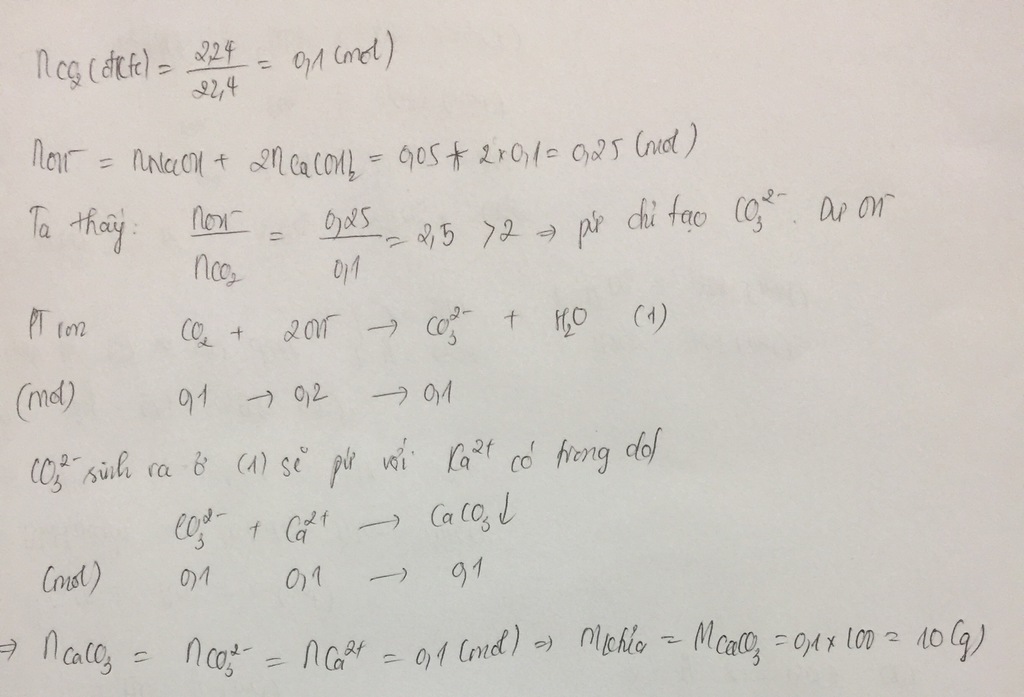 nCO₂ (đktc) = 2,24 / 22,4 = 0,1 (mol)
nOH⁻ = nNaOH + 2nCa(OH)₂ = 0,05 + 2 x 0,1 = 0,25 (mol)
Ta thấy: nOH⁻ / nCO₂ = 0,25 / 0,1 = 2,5 > 2 ⇒ pứ chỉ tạo CO₃²⁻. Dư OH⁻
PT ion CO₂ + 2OH⁻ → CO₃²⁻ + H₂O (1)
(mol) 0,1 → 0,2 → 0,1
CO₃²⁻ sinh ra ở (1) sẽ pứ với Ca²⁺ có trong dd
CO₃²⁻ + Ca²⁺ → CaCO₃↓
(mol) 0,1 0,1 → 0,1
⇒ nCaCO₃ = nCO₃²⁻ = nCa²⁺ = 0,1 (mol) ⇒ m↓ chứa = mCaCO₃ = 0,1 x 100 = 10 (g)